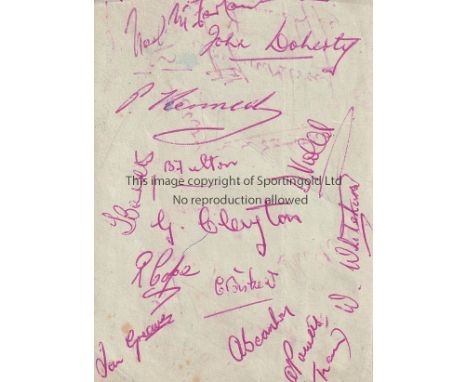 Noel McFarlane
John Doherty
P. Kennedy
B Fulton
D Viollet
This image copyright of Sportingold Ltd
No reproduction allowed
G. Clayton
W. Whitehurst
R Cope
E Birkett
Ian Greaves
A Scanlon